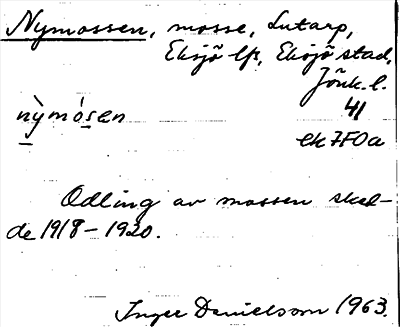 Nymossen, mosse, Lutarp,
Eksjö lfs, Eksjö stad,
Jönk. l.
41
nỳmósen
ek 7F0a
Odling av mossen sked-
de 1918-1920.
Inger Danielsson 1963.